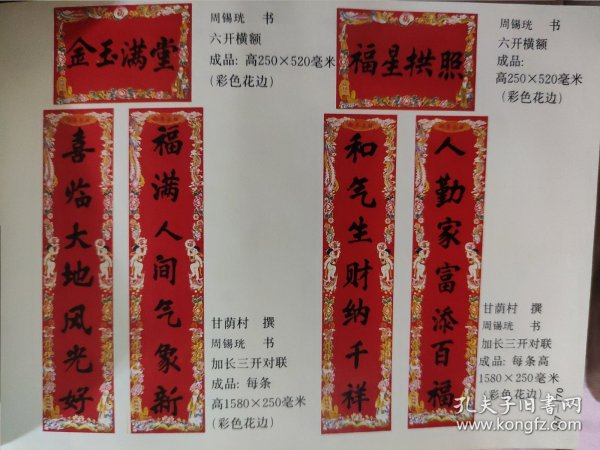 金玉满堂
周锡珖 书
六开横额
成品: 高250×520毫米
(彩色花边)
福星拱照
周锡珖 书
六开横额
成品:
高250×520毫米
(彩色花边)
喜临大地风光好
福满人间气象新
甘荫村 撰
周锡珖 书
加长三开对联
成品: 每条
高1580×250毫米
(彩色花边)
和气生财纳千祥
人勤家富添百福
甘荫村 撰
周锡珖 书
加长三开对联
成品: 每条高
1580×250毫米
(彩色花边)
孔夫子旧书网